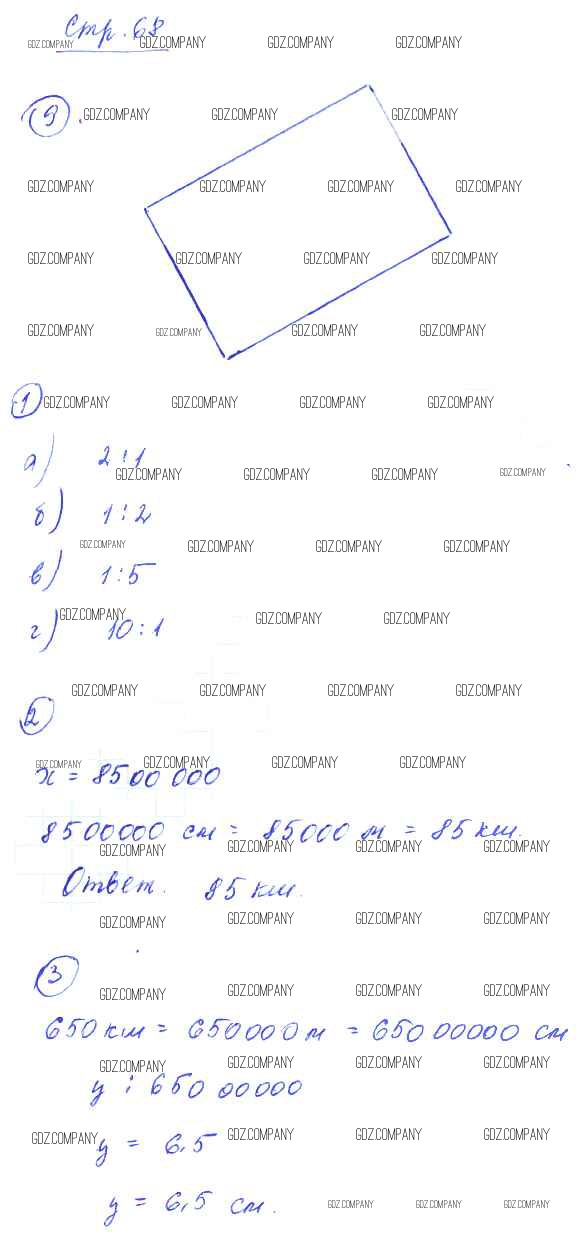 Стр. 68
GDZ.COMPANY GDZ.COMPANY GDZ.COMPANY GDZ.COMPANY
9. GDZ.COMPANY GDZ.COMPANY GDZ.COMPANY
GDZ.COMPANY GDZ.COMPANY GDZ.COMPANY GDZ.COMPANY
GDZ.COMPANY GDZ.COMPANY GDZ.COMPANY GDZ.COMPANY
GDZ.COMPANY GDZ.COMPANY GDZ.COMPANY GDZ.COMPANY
1 GDZ.COMPANY GDZ.COMPANY GDZ.COMPANY GDZ.COMPANY
а) 2:1
GDZ.COMPANY GDZ.COMPANY GDZ.COMPANY GDZ.COMPANY
б) 1:2
GDZ.COMPANY GDZ.COMPANY GDZ.COMPANY GDZ.COMPANY
в) 1:5
GDZ.COMPANY GDZ.COMPANY GDZ.COMPANY
г) 10:1
GDZ.COMPANY GDZ.COMPANY GDZ.COMPANY GDZ.COMPANY
2
GDZ.COMPANY GDZ.COMPANY GDZ.COMPANY GDZ.COMPANY
x = 8500 000
8500000 см = 85000 м = 85 км.
GDZ.COMPANY GDZ.COMPANY GDZ.COMPANY GDZ.COMPANY
Ответ. 85 км.
GDZ.COMPANY GDZ.COMPANY GDZ.COMPANY GDZ.COMPANY
3
GDZ.COMPANY GDZ.COMPANY GDZ.COMPANY GDZ.COMPANY
650 км = 650000 м = 65000000 см
GDZ.COMPANY GDZ.COMPANY GDZ.COMPANY GDZ.COMPANY
y : 650 00000
GDZ.COMPANY GDZ.COMPANY GDZ.COMPANY GDZ.COMPANY
y = 6,5
y = 6,5 см.
GDZ.COMPANY GDZ.COMPANY GDZ.COMPANY